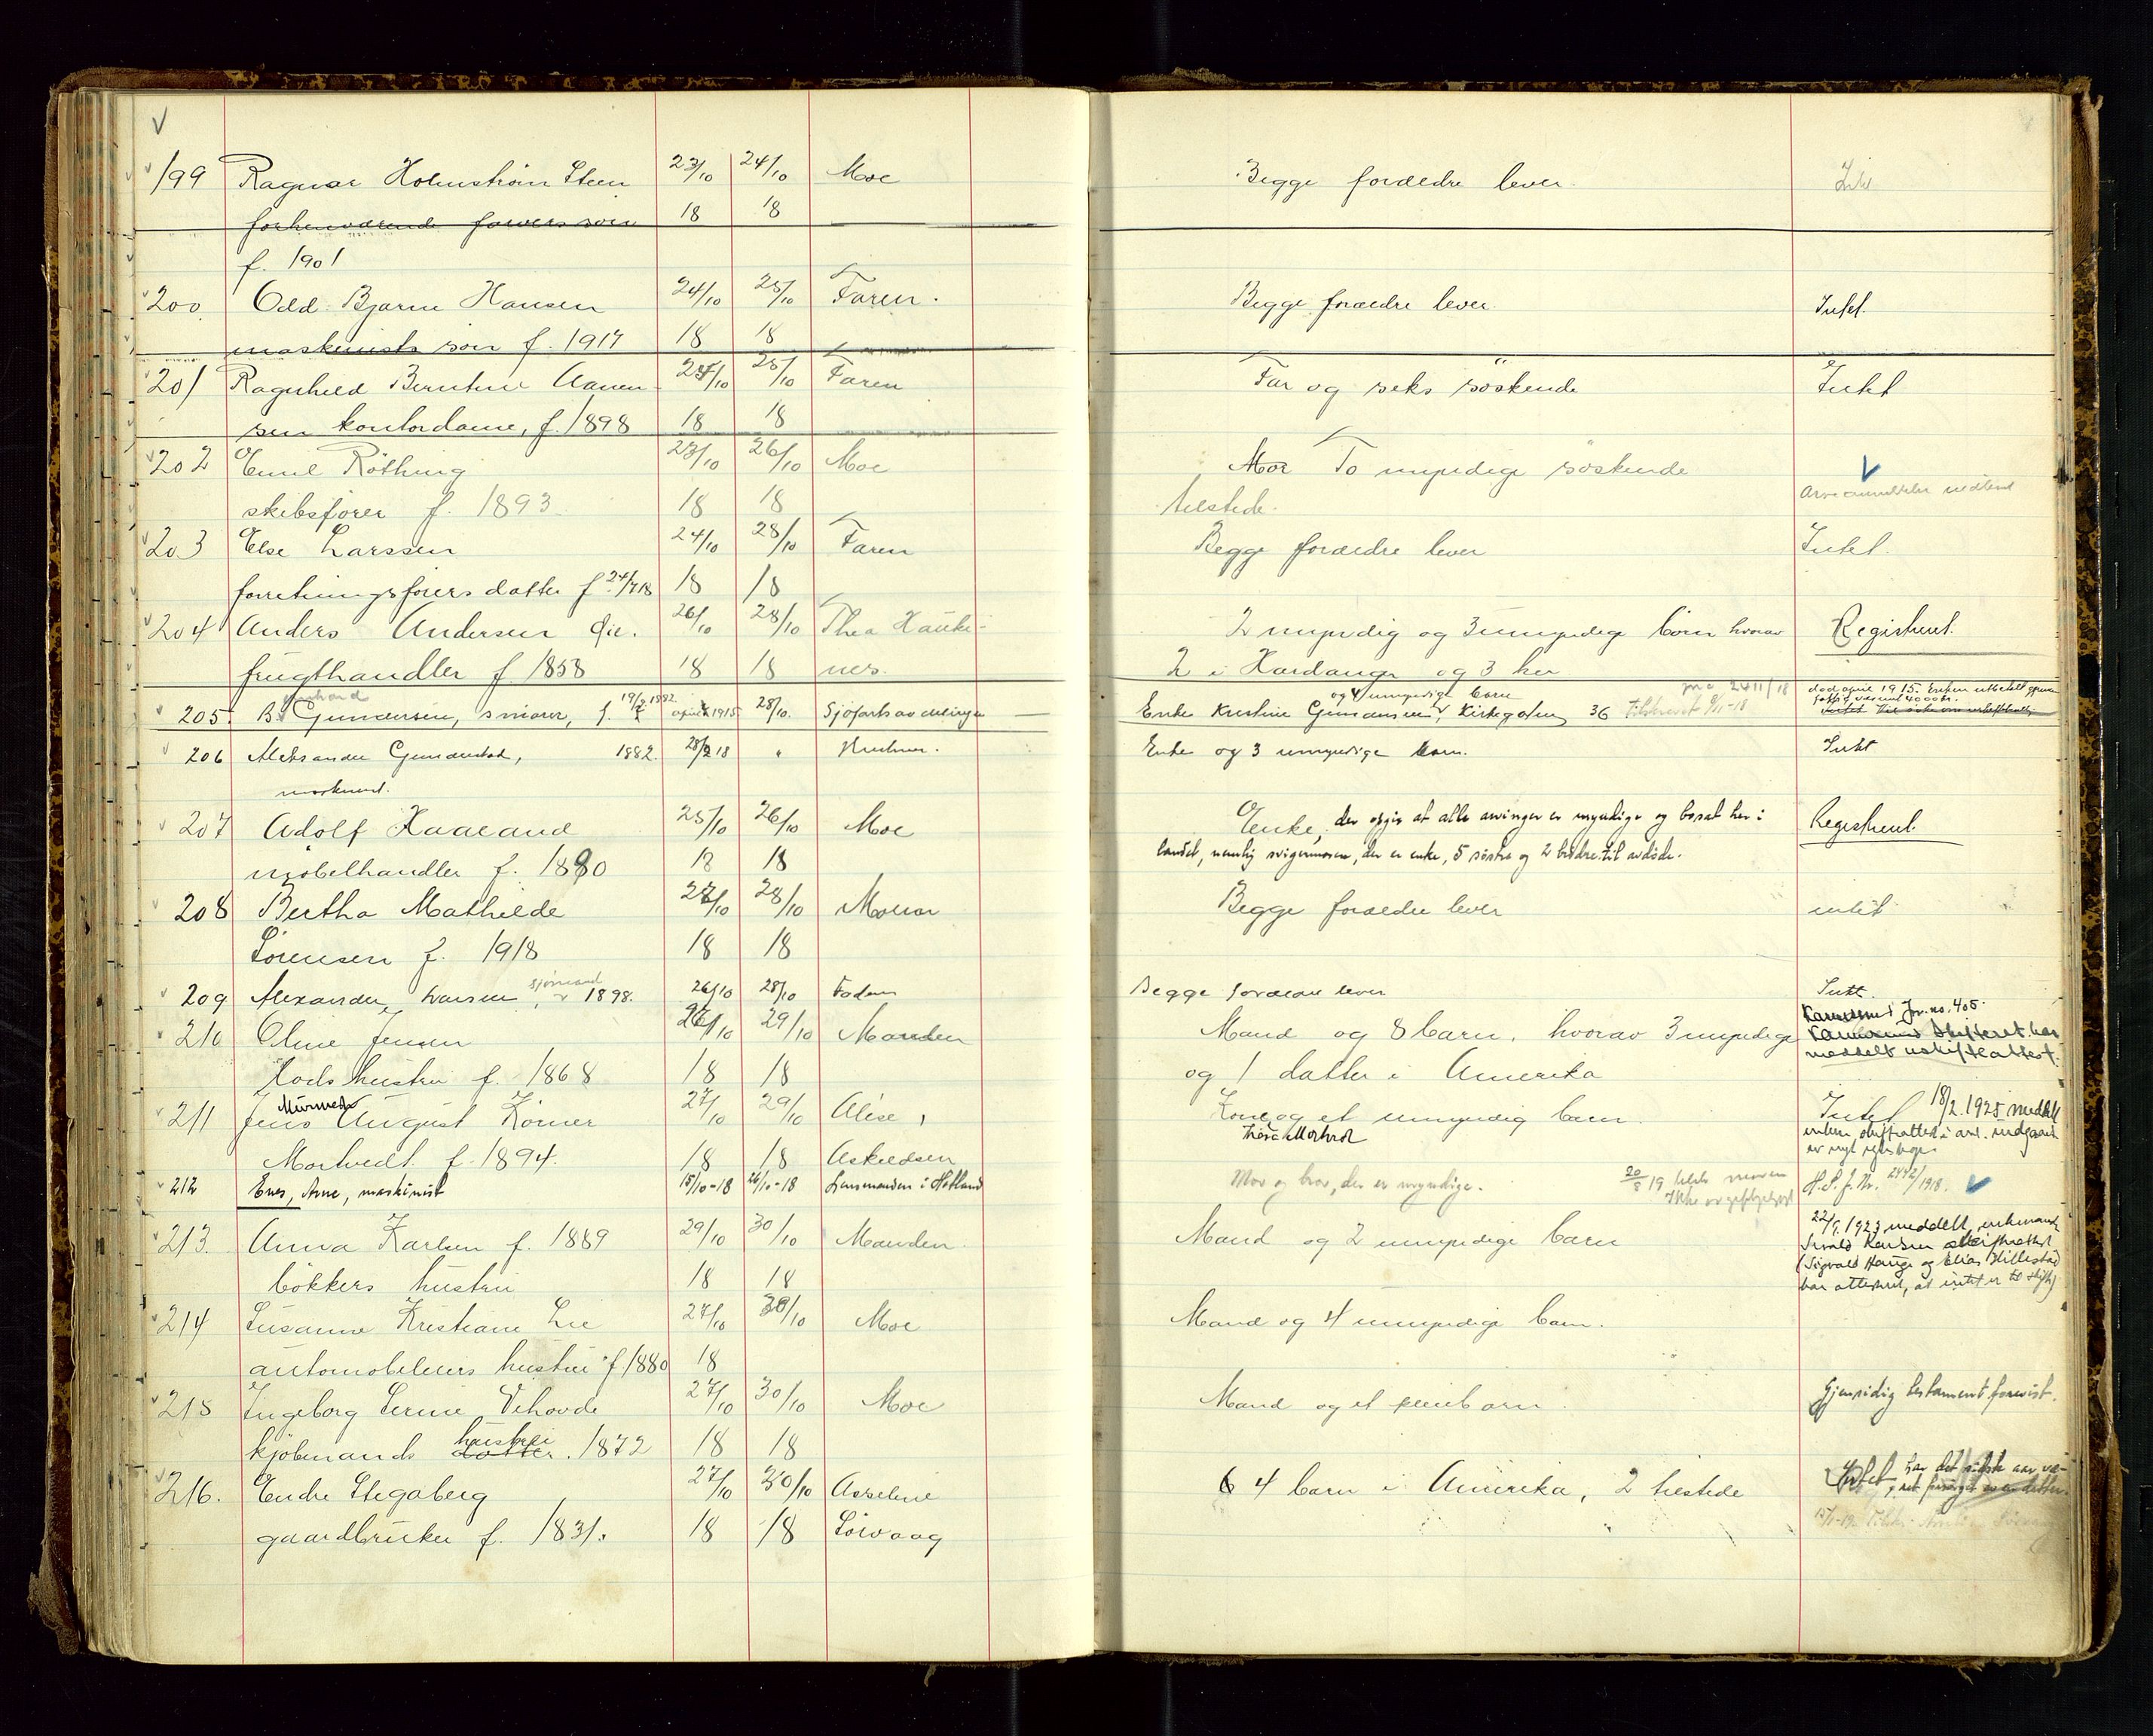 199 Ragnar Holmstrøm Steen 23/10 24/10 Moe Begge forældre lever. Intet
forhenværende søn 18 18
f. 1901
200. Odd Bjarne Hansen 24/10 25/10 Faren. Begge forældre lever. Intet.
maskinists søn f. 1917 18 18
201 Ragnhild Berntine Aanen- 24/10 25/10 Faren Far og seks søskende Intet
sen kontordame, f. 1898 18 18
202 Emil Röthing 23/10 26/10 Moe Mor To umyndige søskende
skibsfører f. 1893 18 18 tilstede. Arveanmeldelse
203 Else Larssen 24/10 28/10 Faren Begge forældre lever Intet.
forretningsførers datter f. 24/7 18 18 18
204 Anders Andersen 26/10 28/10 Thea Hauke- 2 myndig og 3 umyndige børn hvorav Registrert.
frugthandler f. 1858 18 18 nes. 2 i Hardanger og 3 her
205. B. Gundersen, smører, f. 19/2 1882. april 1915 28/10. Sjøfartsavdelingen Enke Kristine Gundersen og 4 umyndige børn, Kirkegaten 36
206 Aleksander Gunderstad, 1882. 28/2 18 " Hustruen. Enke og 3 umyndige barn. Intet
maskinist.
207 Adolf Haaland 25/10 26/10 Moe Enke, der opgir at alle arvinger er myndige og bosat her i Registrert.
møbelhandler f. 1880 18 18 landet, nemlig svigermoren, der er enke, 5 søstre og 2 brødre til avdøde.
208 Bertha Mathilde 27/10 28/10 Moren Begge forældre lever intet
Sørensen f. 1918 18 18
209 Alexander Ivarsen, sjømand 1898. 26/10 28/10 Faderen Begge forældre lever Intet.
210 Oline Jensen 26/10 29/10 Manden Mand og 8 barn, hvorav 3 myndige Jr. no. 405.
Lods hustru f. 1868 18 18 og 1 datter i Amerika meddelt uskifteattest.
211 Jens August Körner 27/10 29/10 Alise, Kone og et umyndig barn. Intet 18/2. 1925 meddelt
Mortvedt f. 1894. 18 18 Askildsen
212 Enes, Arne, maskinist 15/10-18 26/10-18 Lensmanden i Hetland Mor og bror, der er myndige. 20/8 19 H.S. J. Nr. 2442/1918.
213. Anna Karlsen f. 1889 29/10 30/10 Manden Mand og 2 umyndige barn 22/9. 1923 meddelt enkemand
bökkers hustru 18 18 (Sigvald Hauge og Elias Hillestad
har attestert, at intet er til skifte)
214 Susanne Kristiane Lie 27/10 30/10 Moe Mand og 4 umyndige barn.
automobileiers hustru f. 1880 18
215 Ingeborg Serine Vehovde 27/10 30/10 Moe Mand og et pleiebarn. Gjensidig testament forevist.
kjøbmands datter hustru. 1872 18 18
216. Endre Stegaberg 27/10 30/10 Asseline 6 4 barn i Amerika, 2 tilstede Intet, har det sidste aar væ-
gaardbruker f. 1831. 18 18 Sörvaag ret forsørget av en datter.